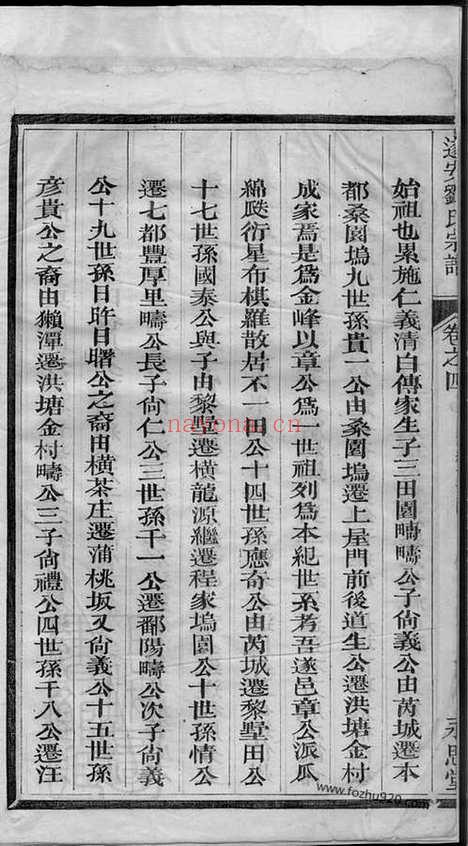 遂安劉氏宗譜 卷之四 永思堂
始祖也累施仁義清白傳家生子三田園疇疇公子尙義公由芮城遷本
都桑園塢九世孫貴一公由桑園塢遷上屋門前後道生公遷洪塘金村
成家焉是爲金峰以章公爲一世祖列爲本紀世系考吾遂邑章公派瓜
綿瓞衍星布棋羅散居不一田公十四世孫應奇公由芮城遷黎墅田公
十七世孫國泰公與子由黎墅遷橫龍源繼遷程家塢園公十世孫情公
遷七都豐厚里疇公長子尙仁公三世孫千一公遷鄱陽疇公次子尙義
公十九世孫日旿日曙公之裔由橫茶庄遷蒲桃坂又尙義公十五世孫
彥貴公之裔由獺潭遷洪塘金村疇公三子尙禮公四世孫千八公遷汪
nayona.cn
www.fozhu920.com